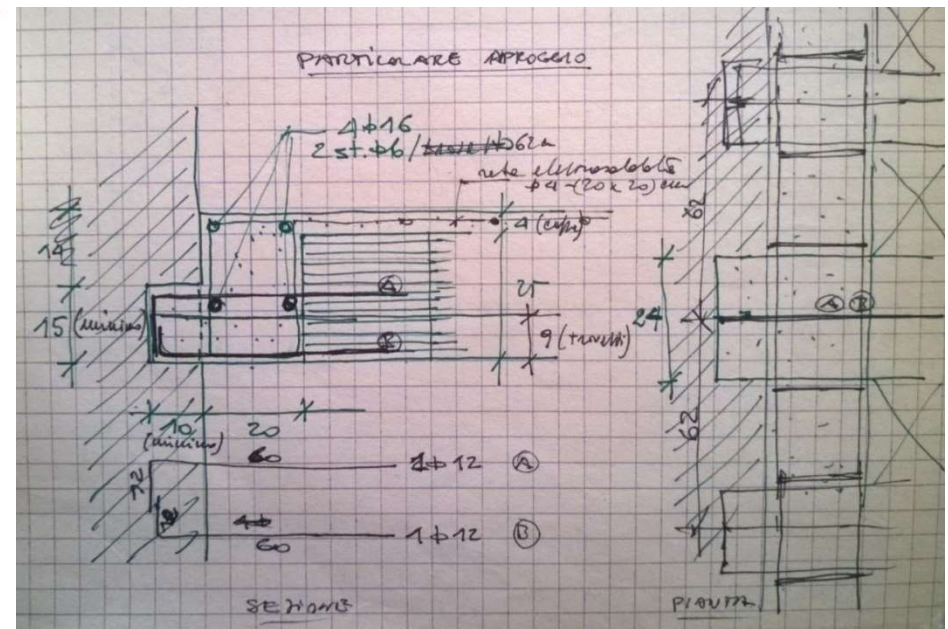 PARTICOLARE APPOGGIO
4ϕ16
2 st. ϕ6/ 62cm
rete elettrosaldata
ϕ4-(20x20)cm
4 (cappa)
14
15 (minimo)
A
B
25
9 (travetti)
10
(minimo)
20
60
1ϕ12 A
12
12
60
1ϕ12 B
SEZIONE
62
24
A B
62
PIANTA